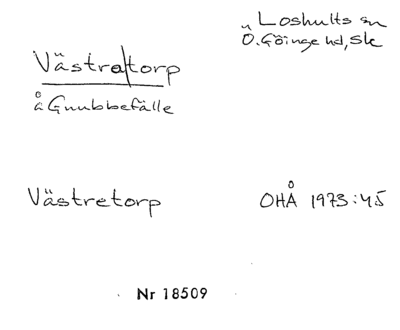 Västra/torp
å Gnubbefälle
Loshults sn
Ö. Göinge hd, Sk
Västretorp
OHÅ 1973:45
Nr 18509